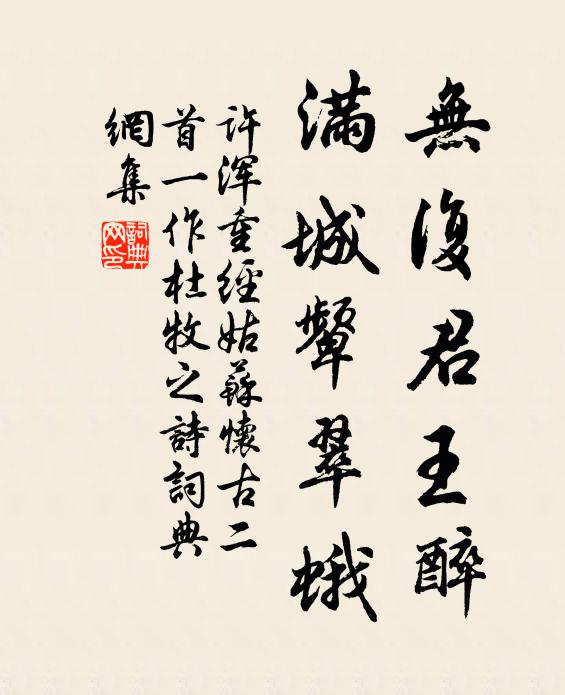 無復君王醉
滿城顰翠蛾
許渾重經姑蘇懷古二
首一作杜牧之詩詞典
網集
詞典
网印